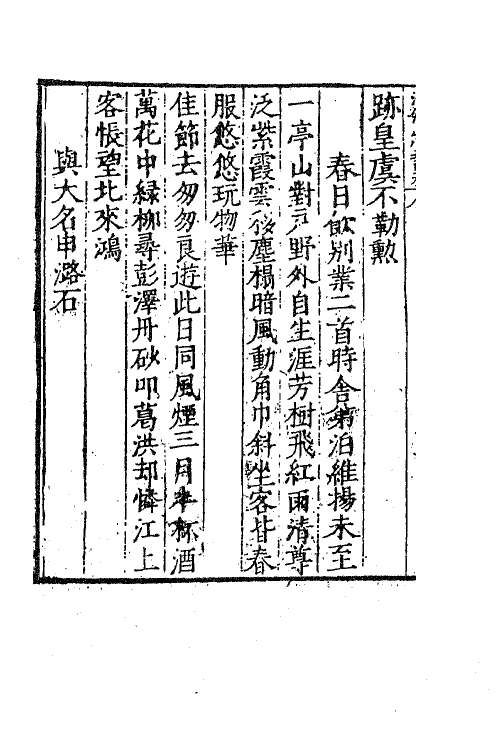 跡皇虞不勒勲
春日飲别業二首時舍弟泊維揚未至
一亭山對戸野外自生涯芳樹飛紅雨清尊
泛紫霞雲移塵榻暗風動角巾斜坐客皆春
服悠悠玩物華
佳節去匆匆良遊此日同風煙三月半杯酒
萬花中緑柳尋彭澤丹砂叩葛洪却憐江上
客悵望北來鴻
與大名申潞石